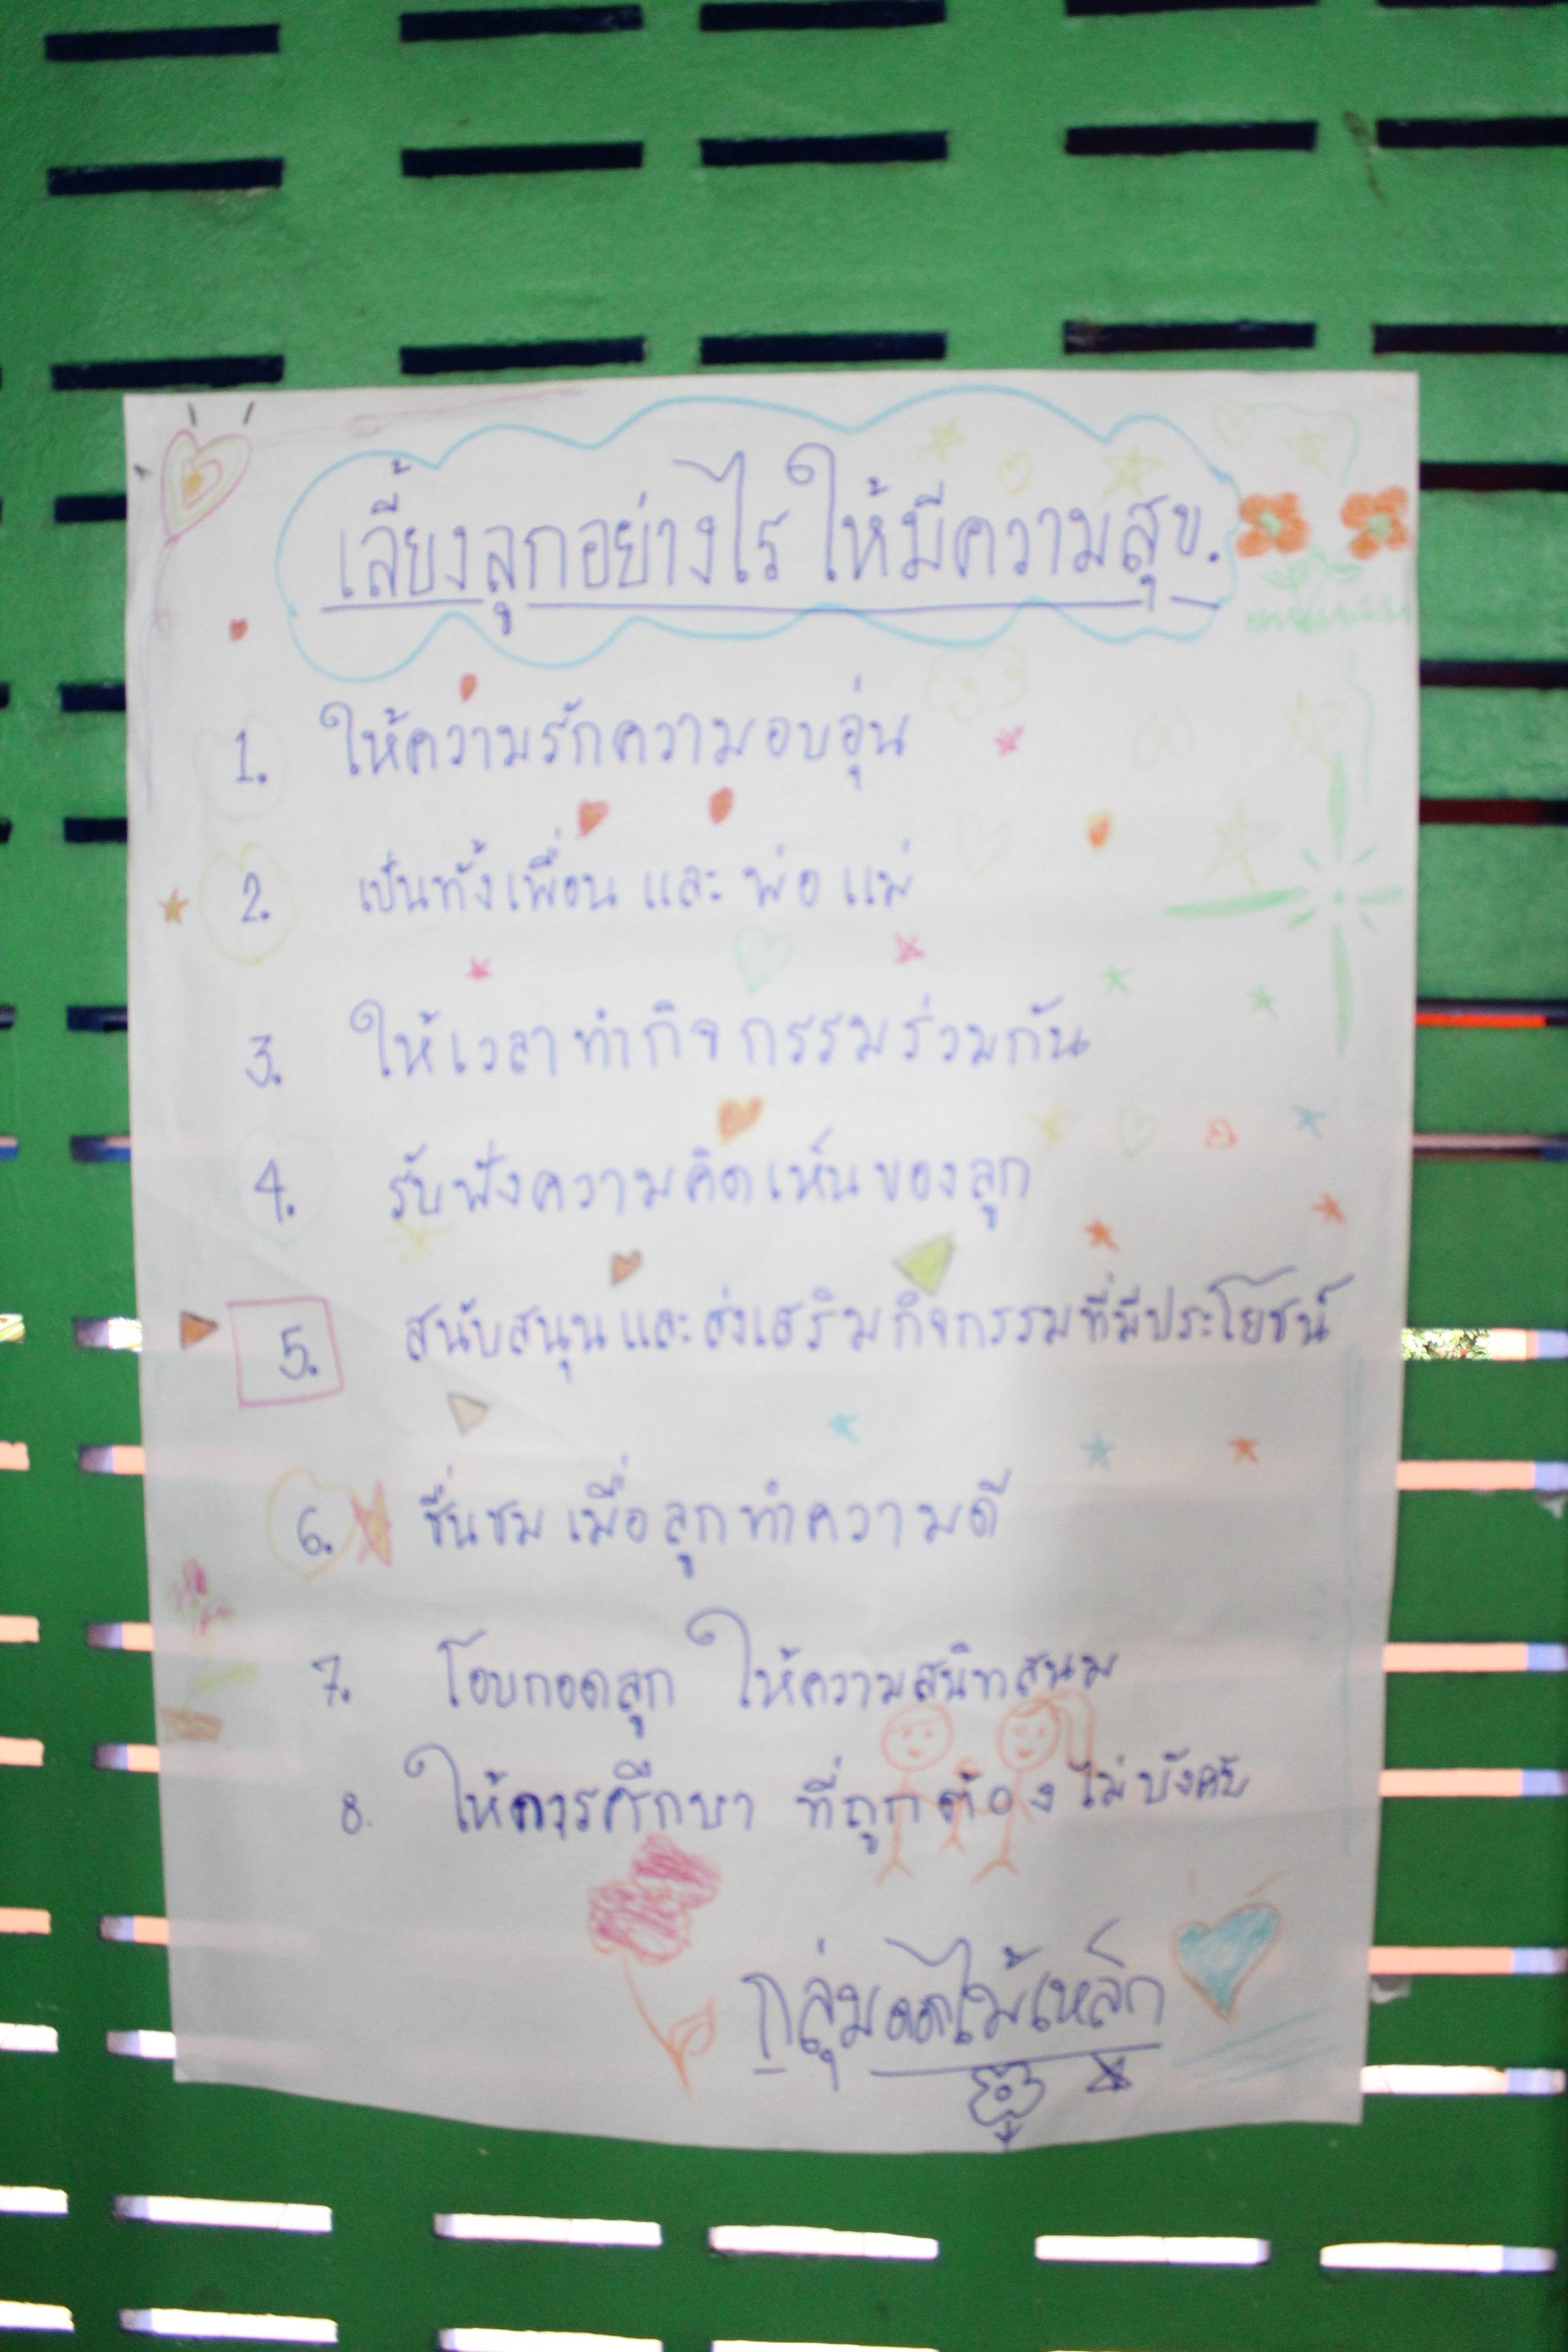 เลี้ยงลูกอย่างไร ให้มีความสุข.
1. ให้ความรักความอบอุ่น
2. เป็นทั้งเพื่อน และ พ่อ แม่
3. ให้เวลาทำกิจกรรมร่วมกัน
4. รับฟังความคิดเห็นของลูก
5. สนับสนุนและส่งเสริมกิจกรรมที่มีประโยชน์
6. ชื่นชม เมื่อลูกทำความดี
7. โอบกอดลูก ให้ความสนิทสนม
8. ให้การศึกษา ที่ถูกต้อง ไม่บังคับ
กลุ่มดดไม้เหล็ก